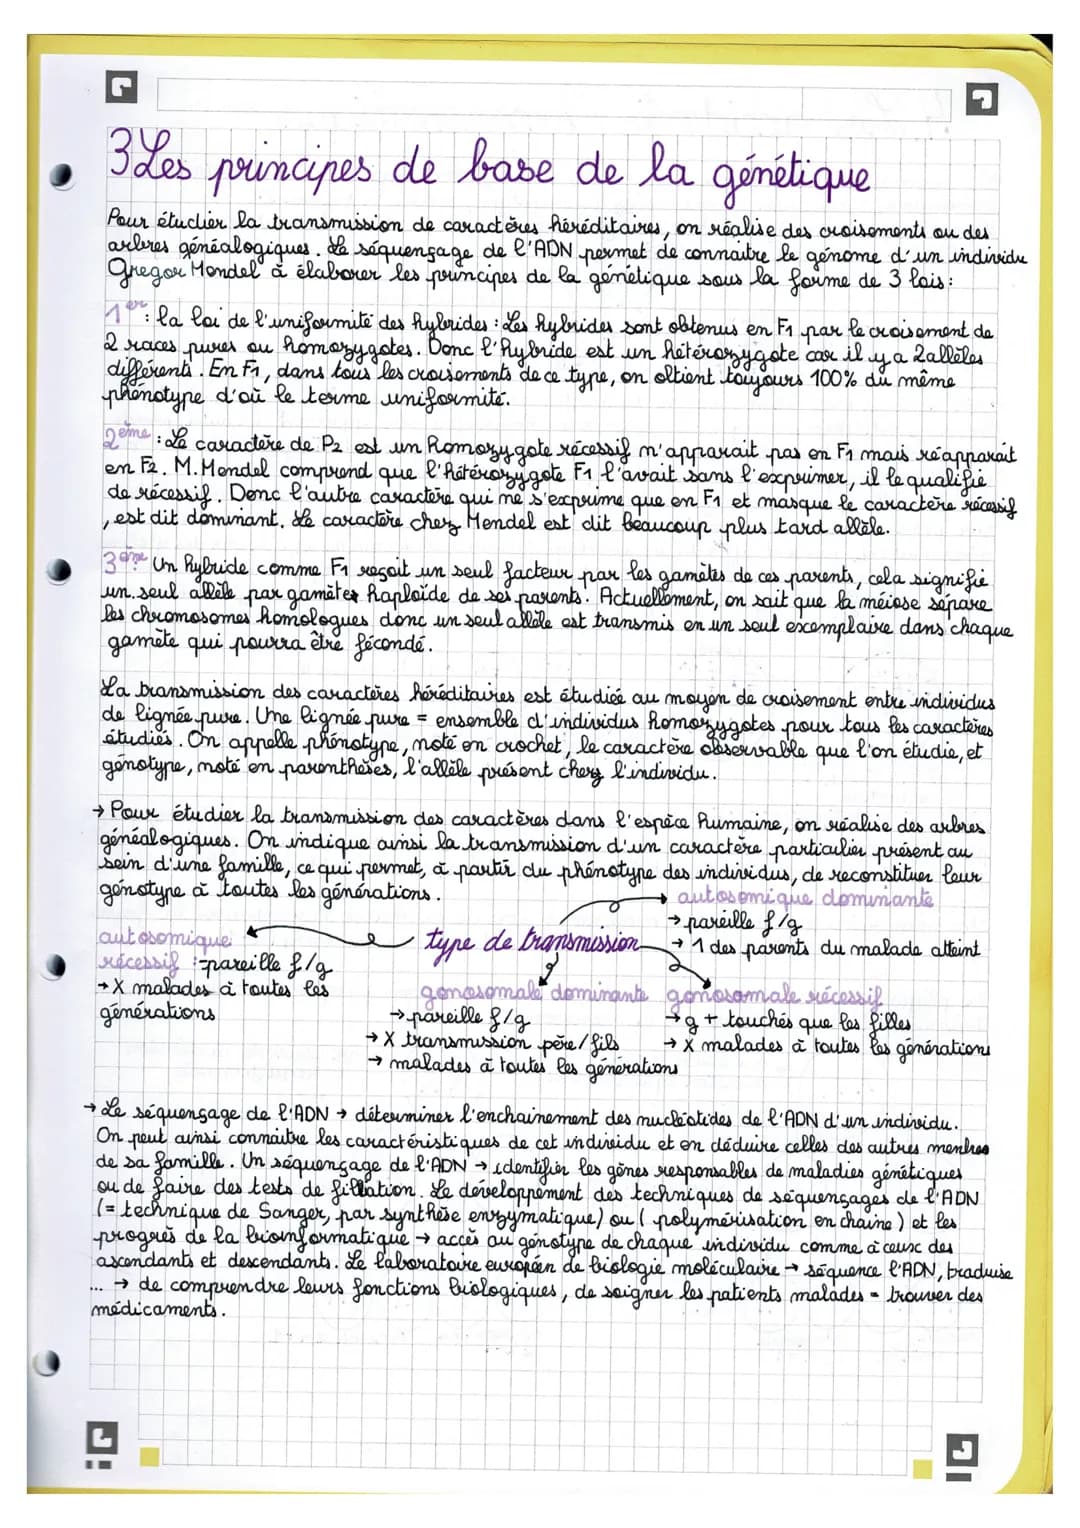 3 Les principes de base de la génétique
Pour étudier la transmission de caractères héréditaires, on réalise des croisements ou des
arbres généalogiques. Le séquençage de l'ADN permet de connaitre le génome d'un individu
Gregor Mendel à élaborer les principes de la génétique sous la forme de 3 lois :
1er : la loi de l'uniformité des hybrides : Les hybrides sont obtenus en F1 par le croisement de
2 races pures ou homozygotes. Donc l'hybride est un hétérozygote car il y a 2 allèles
différents. En F1, dans tous les croisements de ce type, on obtient toujours 100% du même
phénotype d'où le terme uniformité.
2ème : Le caractère de P2 est un homozygote récessif n'apparait pas en F1 mais réapparait
en F2. M. Mendel comprend que l'hétérozygote F1 l'avait sans l'exprimer, il le qualifie
de récessif. Donc l'autre caractère qui ne s'exprime que en F1 et masque le caractère récessif
, est dit dominant. Le caractère chez Mendel est dit beaucoup plus tard allèle.
3ème Un hybride comme F1 reçoit un seul facteur par les gamètes de ces parents, cela signifie
un seul allèle par gamètes haploïde de ses parents. Actuellement, on sait que la méiose sépare
les chromosomes homologues donc un seul allèle est transmis en un seul exemplaire dans chaque
gamète qui pourra être fécondé.
La transmission des caractères héréditaires est étudiée au moyen de croisement entre individus
de lignée pure. Une lignée pure = ensemble d'individus homozygotes pour tous les caractères
étudiés. On appelle phénotype, noté en crochet, le caractère observable que l'on étudie, et
génotype, noté en parenthèses, l'allèle présent chez l'individu.
→ Pour étudier la transmission des caractères dans l'espèce humaine, on réalise des arbres
généalogiques. On indique ainsi la transmission d'un caractère particulier présent au
sein d'une famille, ce qui permet, à partir du phénotype des individus, de reconstituer leur
génotype à toutes les générations.
autosomique dominante
→ pareille f/g
→ 1 des parents du malade atteint
type de transmission
autosomique
récessif : pareille f/g
→ X malades à toutes les
générations
gonosomale dominante
→ pareille f/g
→ X transmission père/fils
→ malades à toutes les générations
gonosomale récessif
→ g + touchés que les filles
→ X malades à toutes les générations
→ Le séquençage de l'ADN → déterminer l'enchainement des nucléotides de l'ADN d'un individu.
On peut ainsi connaitre les caractéristiques de cet individu et en déduire celles des autres membres
de sa famille. Un séquençage de l'ADN → identifier les gènes responsables de maladies génétiques
ou de faire des tests de filiation. Le développement des techniques de séquençages de l'ADN
(= technique de Sanger, par synthèse enzymatique) ou ( polymérisation en chaine ) et les
progrès de la bioinformatique → accès au génotype de chaque individu comme à ceux des
ascendants et descendants. Le laboratoire européen de biologie moléculaire → séquence l'ADN, traduise
... → de comprendre leurs fonctions biologiques, de soigner les patients malades = trouver des
médicaments.